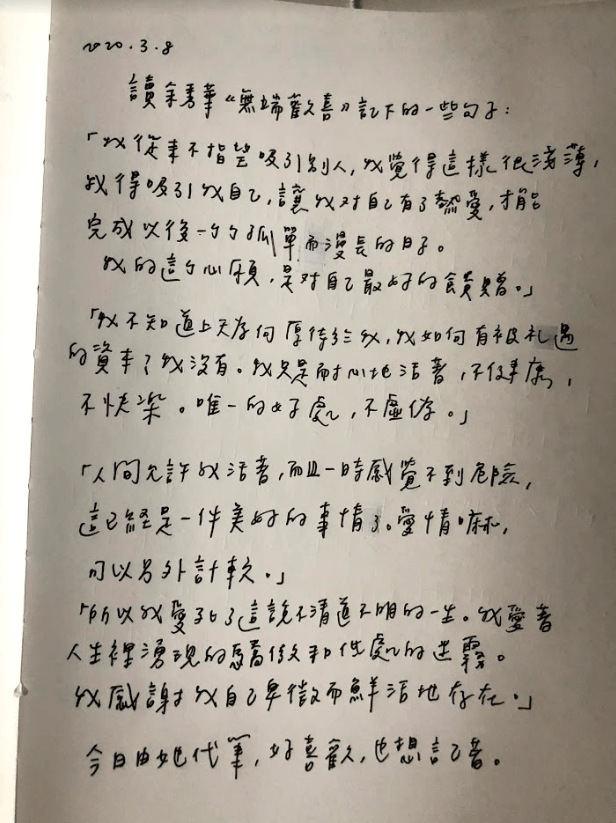 2020.3.8
讀余秀華《無端歡喜》記下的一些句子：
「我從來不指望吸引別人，我覺得這樣很淺薄，
我得吸引我自己，讓我對自己有了熱愛，才能
完成以後一個個孤單而漫長的日子。
我的這個心願，是對自己最好的饋贈。」
「我不知道上天為何厚待於我，我如何有被礼遇
的資本了我沒有。我只是耐心地活著，不健康，
不快樂。唯一的好處，不虛偽。」
「人間允許我活著，而且一時感覺不到危險，
這已経是一件美好的事情了。愛情嘛，
可以另外計較。」
「所以我愛了這說不清道不明的一生。我愛著
人生裡湧現的驕傲和低處的迷霧。
我感謝我自己卑微而鮮活地存在。」
今日由她代筆，好喜歡，也想記著。